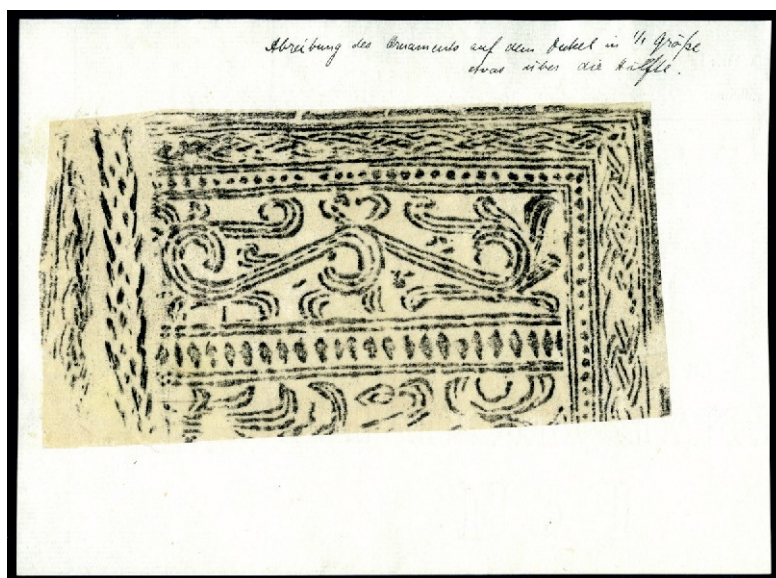 Abreibung des Ornaments auf dem Deckel in 1/1 Größe
etwas über die Hälfte.